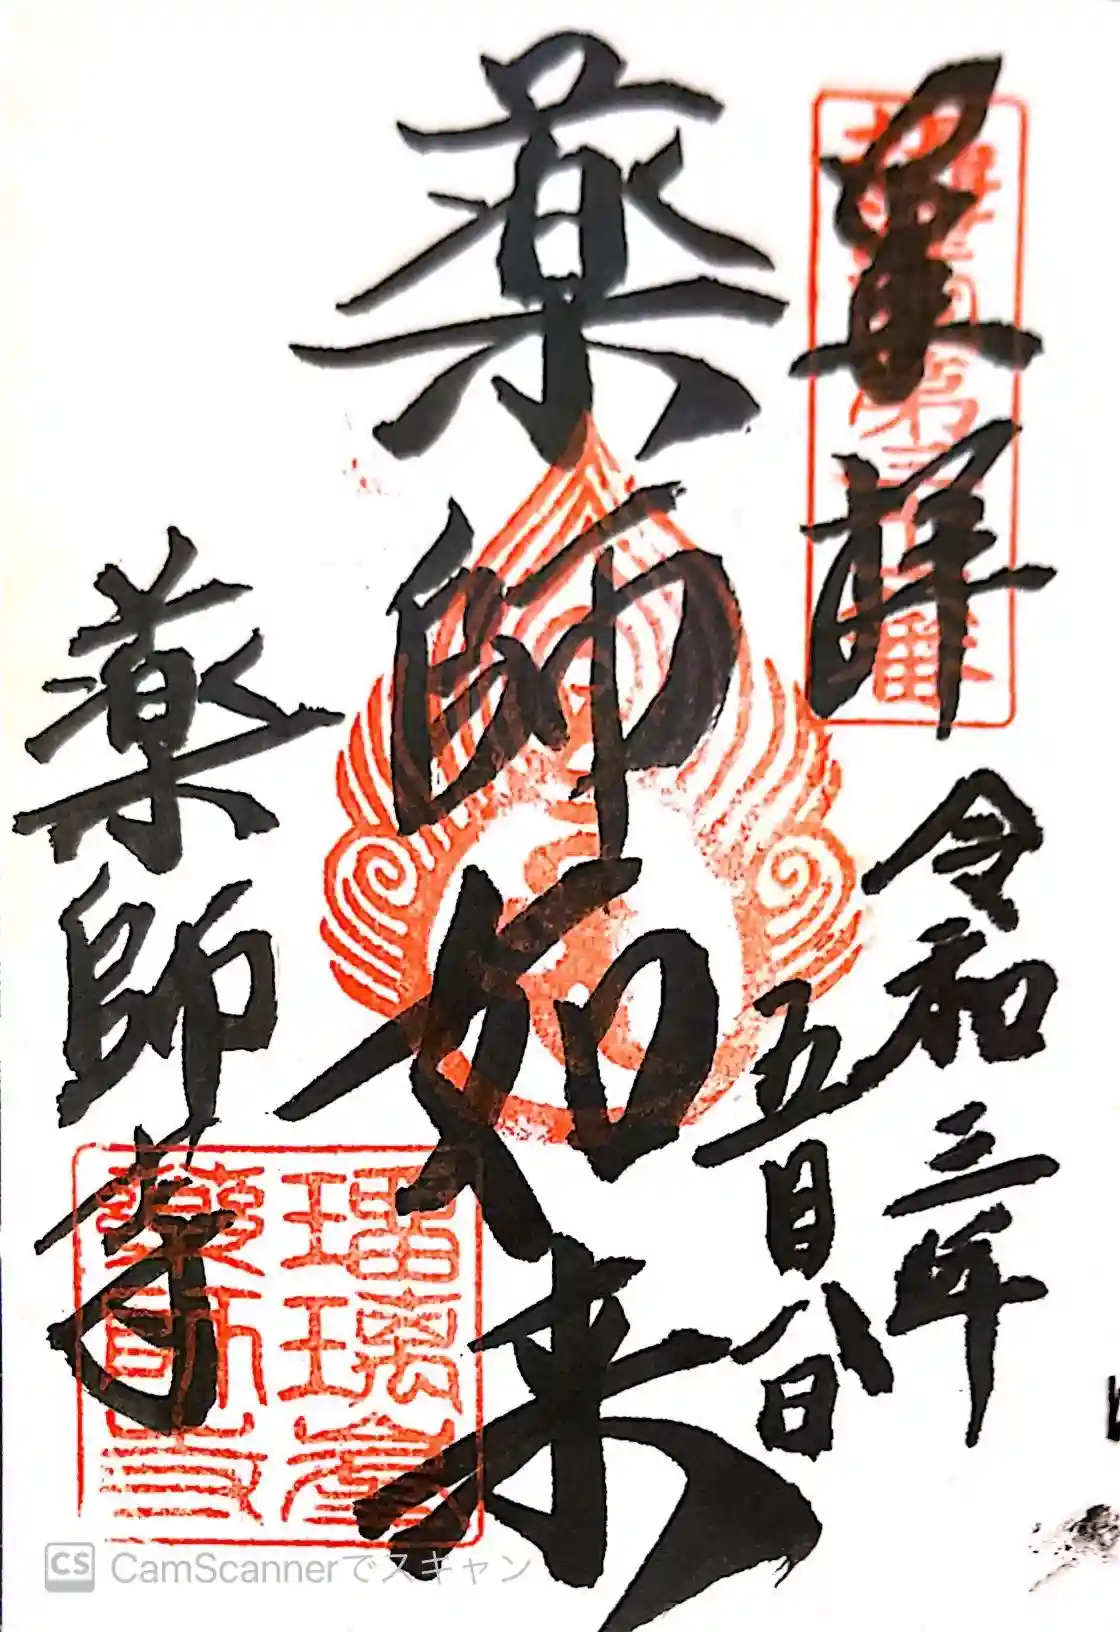 奉拝
令和三年
五月八日
薬師如来
薬師寺
瑠璃山
薬師寺
CS CamScannerでスキャン